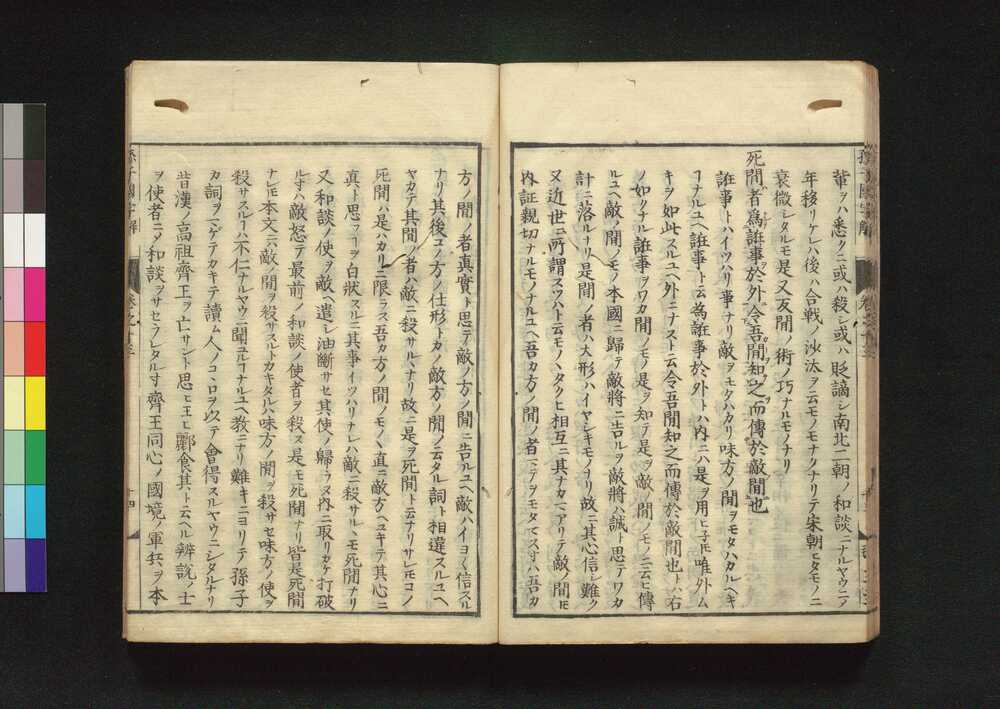 輩ヲハ悉クニ或ハ殺シ或ハ貶謫シ南北二朝ノ和談ニナルヤウニテ
年移リケレハ後ハ合戦ノ沙汰ヲ云モノモナクナリテ宋朝ヒタモノニ
衰微シタルモ是又反間ノ術ノ巧ナルモノナリ
死間者為誑事於外令吾間知之而傳於敵間也
誑事トハイツハリ事ナリ敵ヲモタハカリ味方ノ間ヲモタハカルヘキ
ヿナルユヘ誑事ト云為誑事於外トハ内ニハ是ヲ用ヒ子𪜈唯外ム
キヲ如此スルユヘ外ニナスト云令吾間知之而傳於敵間也トハ右
ノ如クナル誑事ヲワカ間ノモノ是ヲ知テ是ヲ敵ノ間ノモノニ云ヒ傳
ルユヘ敵ノ間ノモノ本國ニ歸テ敵將ニ告ルヲ敵將ハ誠ト思テワカ
計ニ落ルナリ是間ノ者ハ大形ハイヤシキモノナリ故ニ其心信シ難ク
又近世ニ所謂スツハト云モノヽタクヒ相互ニ其ナカニアリテ敵ノ間𪜈
内証親切ナルモノナルユヘ吾カ方ノ間ノ者ニテヲモタテス寸ハ吾カ
方ノ間ノ者真實ト思テ敵ノ方ノ間ニ告ルユヘ敵ハイヨ〱信スル
ナリ其後コノ方ノ仕形トカノ敵方ノ間ノ云タル詞ト相違スルユヘ
ヤカテ其間ノ者ハ敵ニ殺サルヽナリ故ニ是ヲ死間ト云ナリサレ𪜈コノ
死間ハ是ハカリニ限ラス吾カ方ノ間ノモノヽ直ニ敵方ヘユキテ其心ニ
真ト思フヿヲ白狀スルニ其事イツハリナレハ敵ニ殺サルヽモ死間ナリ
又和談ノ使ヲ敵ヘ遣シ油斷サセ其使ノ歸ラヌ内ニ取リカケ打破
ル寸ハ敵怒テ最前ノ和談ノ使者ヲ殺ス是モ死間ナリ皆是死間
ナレ𪜈本文ニ敵ノ間ヲ殺サスルトカキタルハ味方ノ間ヲ殺サセ味方ノ使ヲ
殺サスルヿハ不仁ナルヤウニ聞ユルヿナルユヘ教ニナリ難キニヨリテ孫子
カ詞ヲマゲテカキテ讀ム人ノコヽロヲ以テ會得スルヤウニシタルナリ
昔漢ノ高祖齊王ヲ亡サント思ヒ玉ヒ酈食其ト云ヘル辨説ノ士
ヲ使者ニメ和談ヲサセラレタル寸齊王同心ノ國境ノ軍兵ヲ本
孫子國字解
巻之十三
十四